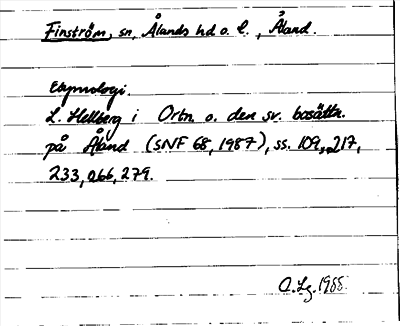 Finström, sn, Ålands hd o. l., Åland.
Etymologi.
L. Hellberg i Ortn. o. den sv. bosättn.
på Åland (SNF 68, 1987), ss. 109, 217,
233, 266, 279.
O. Lg. 1988.